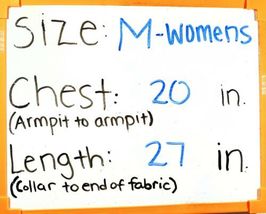 Size: M-Womens
Chest: 20 in.
(Armpit to armpit)
Length: 27 in.
(Collar to end of fabric)